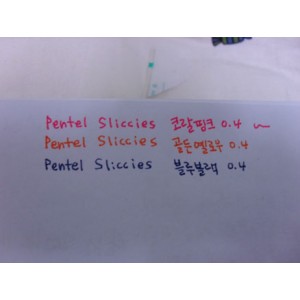 Pentel Sliccies 코랄핑크 0.4 ~
Pentel Sliccies 골든옐로우 0.4
Pentel Sliccies 블루블랙 0.4